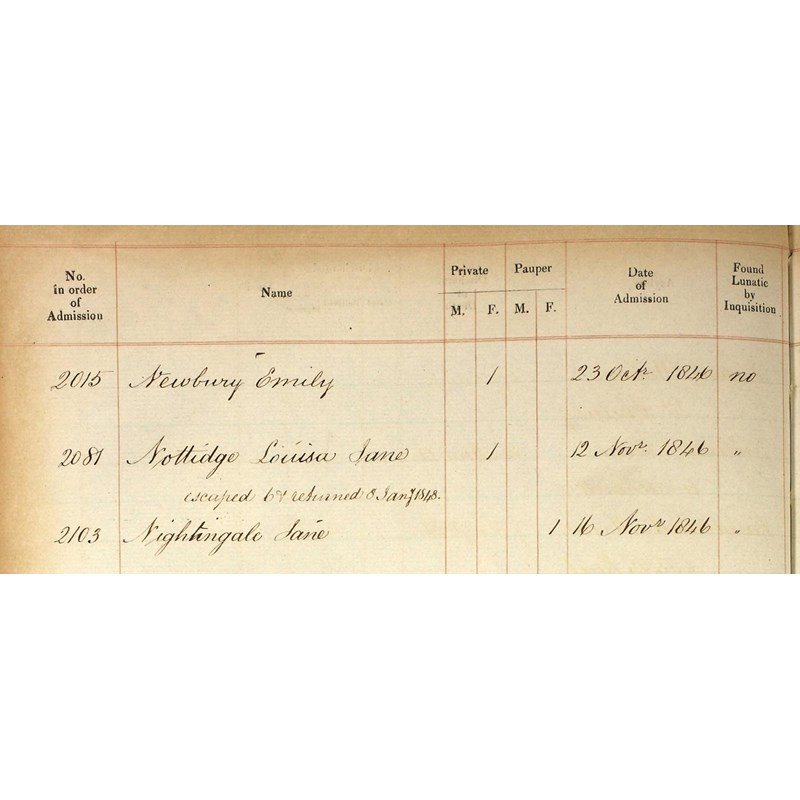 No. in order of Admission Name Private Pauper Date of Admission Found Lunatic by Inquisition
M. F. M. F.
2015 Newbury Emily 1 23 Octr. 1846 no
2081 Nottidge Louisa Jane 1 12 Novr. 1846 "
escaped 6 & returned 8 Jany 1848.
2103 Nightingale Jane 1 16 Novr 1846 "